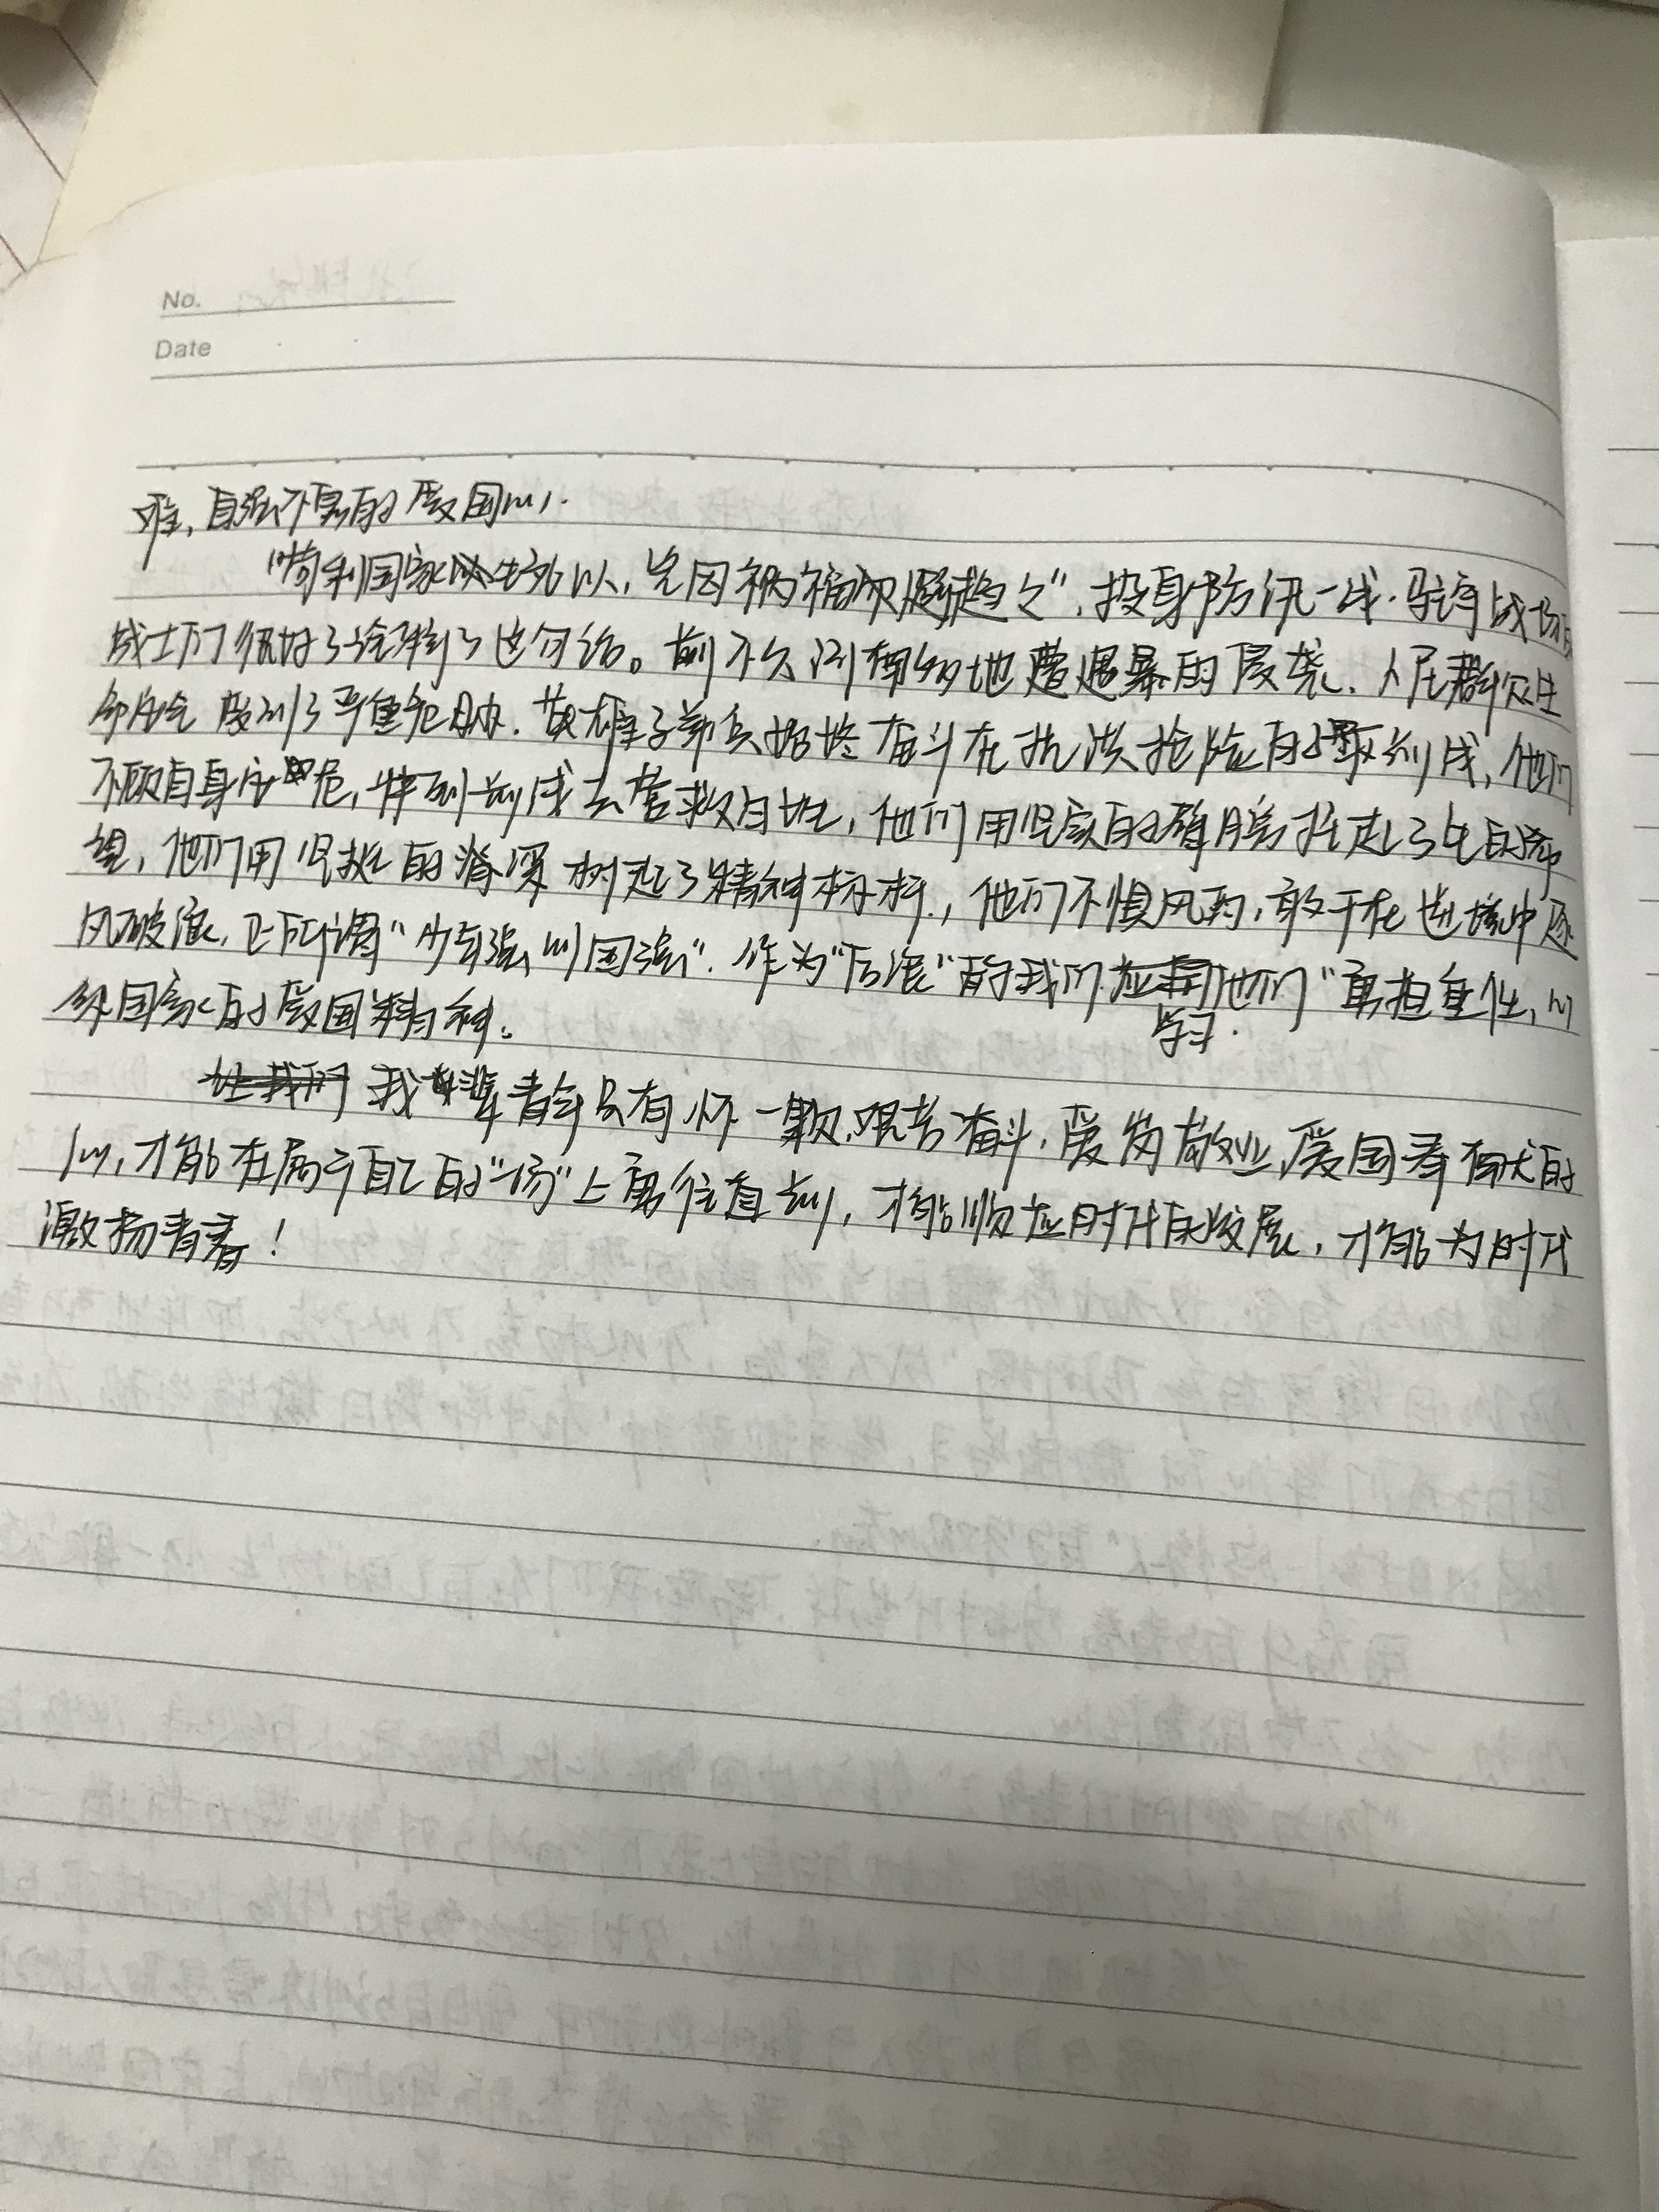 No.
Date
难,自强不息的爱国心.
"苟利国家生死以,岂因祸福避趋之",投身防汛一线.驰骋战场的
战士们很好了诠释了这句话。前不久河南多地遭遇暴雨侵袭.人民群众生
命安全受到了严重危胁.英雄子弟兵始终奋斗在抗洪抢险的最前线,他们
不顾自身安危,华到前线去营救百姓,他们用坚实的臂膀托起了生的希
望,他们用坚挺的脊梁树起了精神标杆.,他们不惧风雨,敢于在逆境中逐
风破浪.正所谓"少年强则国强".作为"后浪"的我们学习他们"勇担重任,心
系国家的爱国精神。
我辈青年只有怀一颗.艰苦奋斗.爱岗敬业.爱国奉献的
心,才能在属于自己的"场"上勇往直前,才能顺应时代的发展,才能为时代
激扬青春!